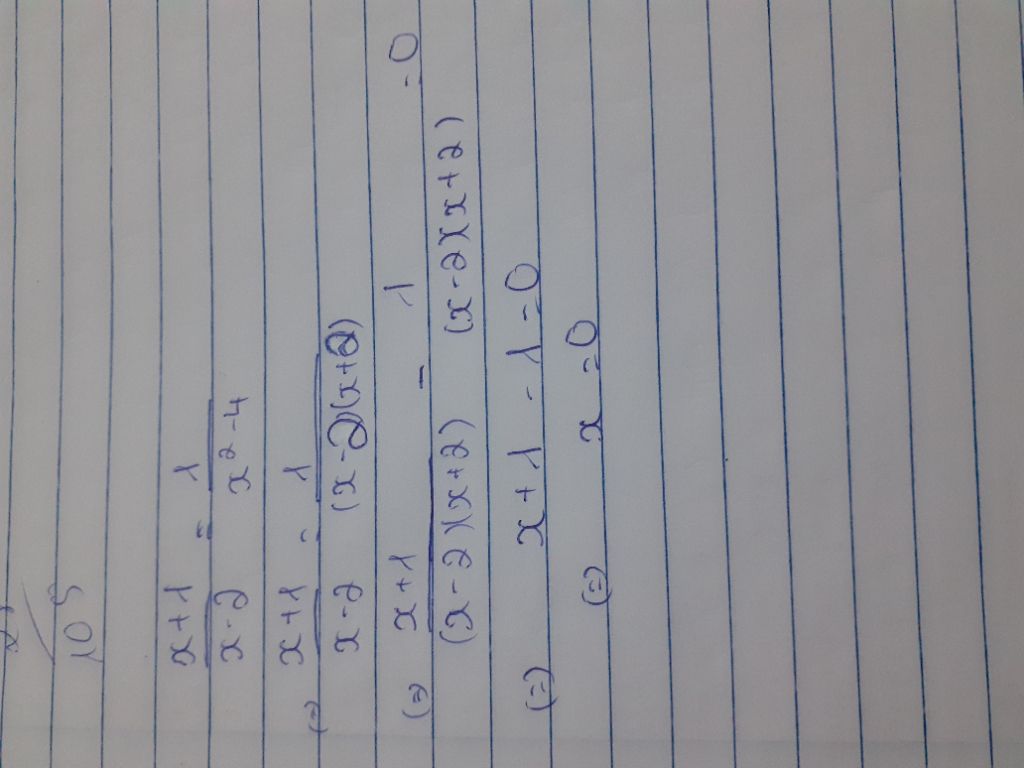 x+1/x-2 = 1/x²-4
(=) x+1/x-2 = 1/(x-2)(x+2)
(=) x+1/(x-2)(x+2) - 1/(x-2)(x+2) = 0
(=) x+1 - 1 = 0
(=) x = 0